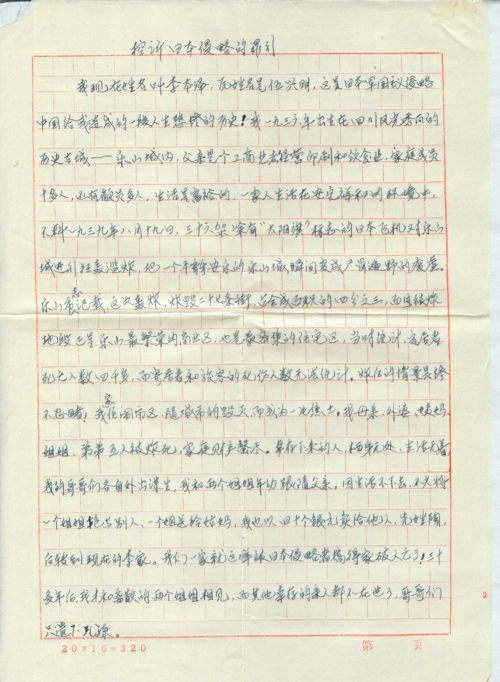 控诉日本侵略的罪行
我现在姓名叫李本泽，原姓名是伍兴明，这是日本军国主义侵略
中国给我造成的一段人生悲惨的历史！我一九三六年出生在四川风光秀向的
历史古城——乐山城内，父亲是个工商业者经营印刷和饮食业，家庭成员
十多人，还有雇员多人，生活是富裕的，一家人生活在安定祥和的环境中，
不料一九三九年八月十九日，三十六架涂有“太阳旗”标志的日本飞机对乐山
城进行狂轰滥炸，把一个平静安乐的乐山城瞬间变成尸首遍野的废墟。
乐山志记载，这次轰炸，炸毁二十七条街，占全城面积的四分之三，而且被炸
地段正是乐山最繁荣的商业区，也是最密集的住宅区，当时统计，定居者
死亡人数四千多，而寄居者和旅客的死伤人数无法统计。炸后的情景悲惨
不忍睹！我家住闹市区，随城市的毁灭而成为一片焦土。我母亲、外婆、姨妈、
姐姐、弟弟五人被炸死，家庭财产罄尽。幸存下来的人，栖身无处，生活无着，
我的哥哥们各自外出谋生，我和两个姐姐年幼跟随父亲。因生活不下去，不久将
一个姐姐抱与别人，一个姐送给姑妈，我也以四十个银元卖给他人，先姓陶，
后转到现在的李家。我们一家就这样被日本侵略者搞得家破人亡了！三十
多年后，我才和离散的两个姐姐相见，而其他幸存的亲人都不在世了，哥哥们
只遗下孔源。
20×16=320
第 页
2